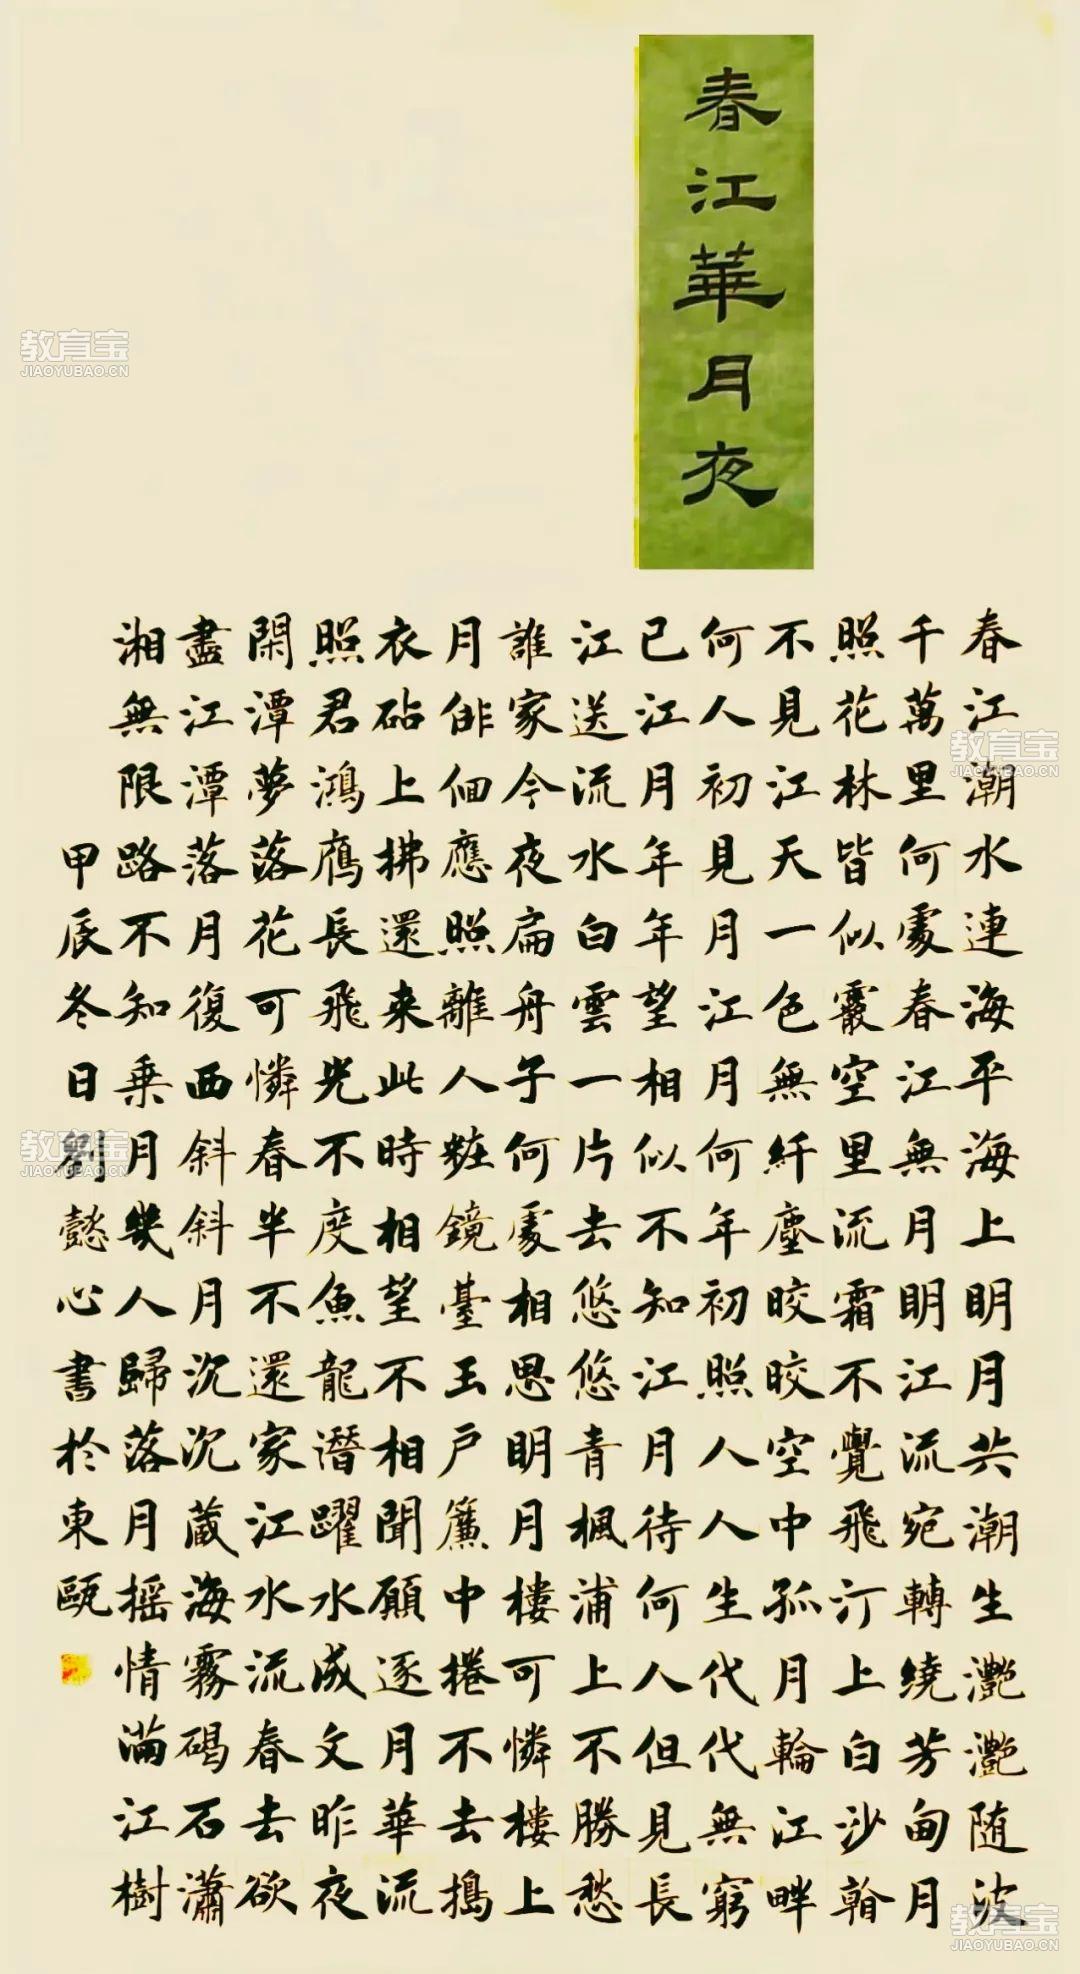 春江華月夜
春江潮水連海平海上明月共潮生灧灧随波
千萬里何處春江無月明江流宛轉繞芳甸月
照花林皆似霰空里流霜不覺飛汀上白沙看
不見江天一色無纖塵皎皎空中孤月輪江畔
何人初見月江月何年初照人人生代代無窮
已江月年年望相似不知江月待何人但見長
江送流水白雲一片去悠悠青楓浦上不勝愁
誰家今夜扁舟子何處相思明月樓可憐樓上
月俳佪應照離人粧鏡臺玉戶簾中捲不去搗
衣砧上拂還来此時相望不相聞願逐月華流
照君鴻鴈長飛光不度魚龍潛躍水成文昨夜
閑潭夢落花可憐春半不還家江水流春去欲
盡江潭落月復西斜斜月沉沉蔵海霧碣石瀟
湘無限路不知乗月幾人歸落月摇情滿江樹
甲辰冬日劉懿心書於東甌
教育宝
JIAOYUBAO.CN
教育宝
JIAOYUBAO.CN
教育宝
JIAOYUBAO.CN
教育宝
JIAOYUBAO.CN